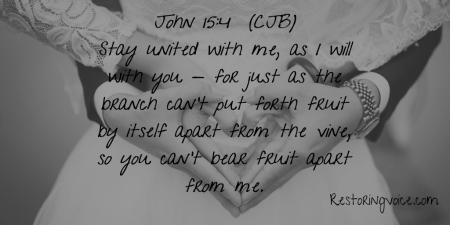 John 15:4 (CJB)
Stay united with me, as I will
with you — for just as the
branch can't put forth fruit
by itself apart from the vine,
so you can't bear fruit apart
from me.
Restoringvoice.com